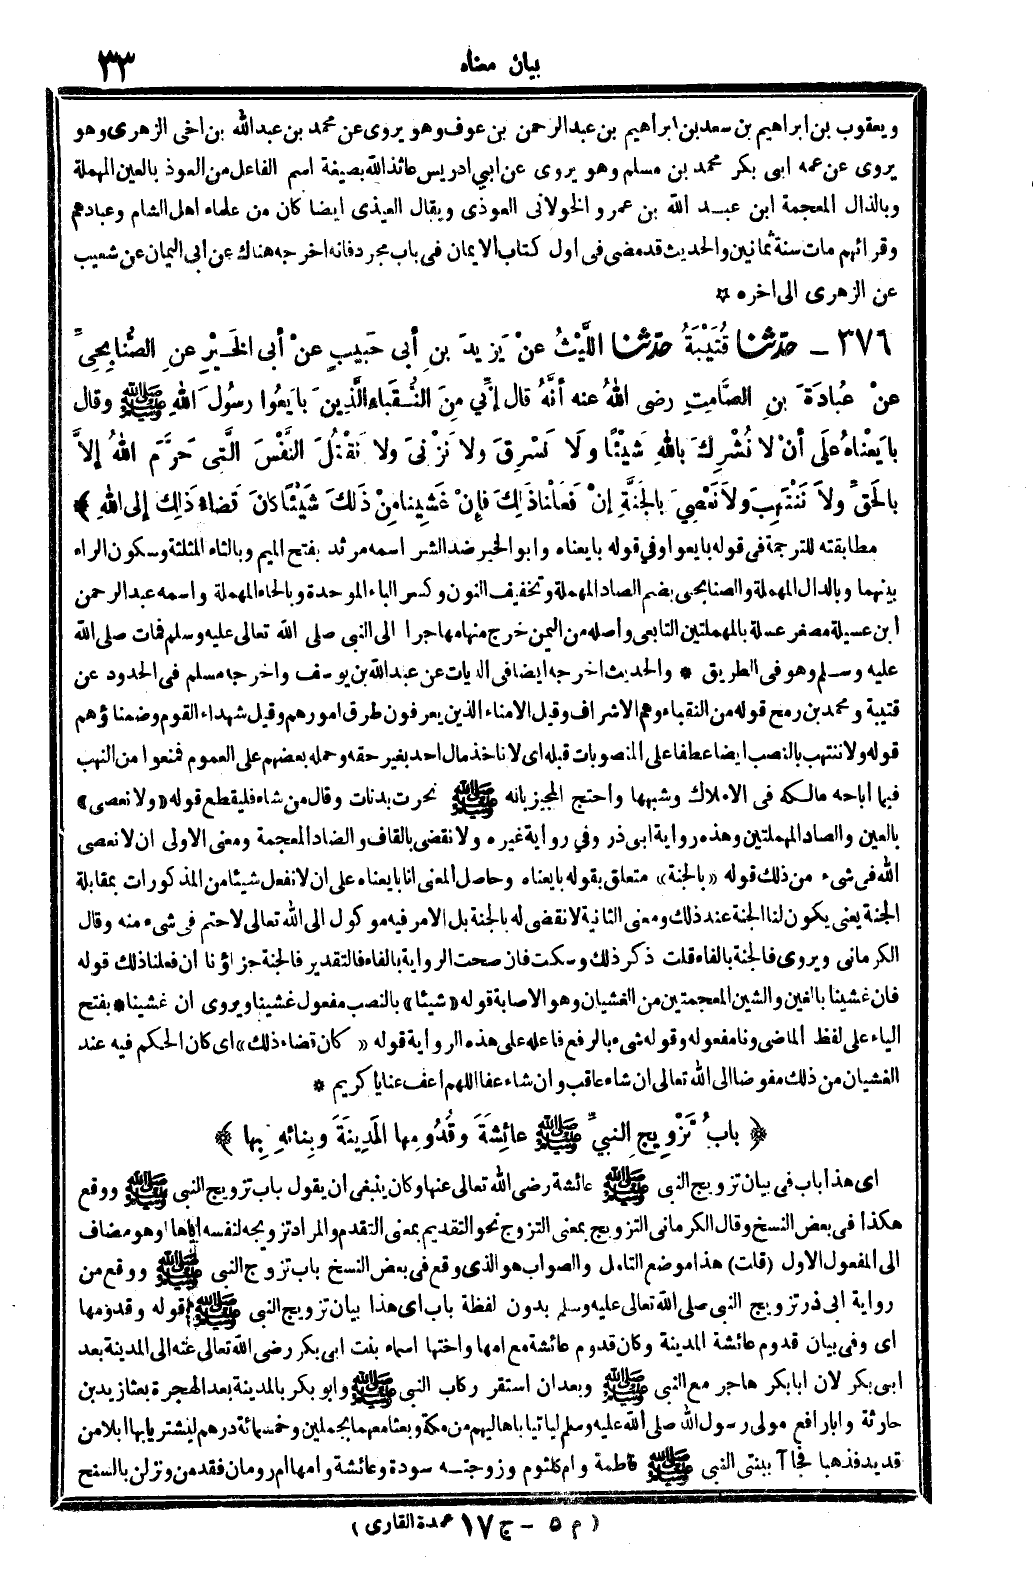 بيان معناه
٣٣
ويعقوب بن ابراهيم بن سعد بن ابراهيم بن عبد الرحمن بن عوف وهو يروى عن محمد بن عبد الله بن اخى الزهرى وهو
يروى عن عمه ابى بكر محمد بن مسلم وهو يروى عن ابي ادريس عائذ الله بصيغة اسم الفاعل من العوذ بالعين المهملة
وبالذال المعجمة ابن عبد الله بن عمرو الخولانى العوذى ويقال العيذى ايضا كان من علماء اهل الشام وعبادهم
وقرائهم مات سنة ثمانين والحديث قد مضى فى اول كتاب الايمان فى باب مجرد فانه اخرجه هناك عن ابى اليمان عن شعيب
عن الزهرى الى اخره ☆
٣٧٦ ـ حَدَّثَنَا قُتَيْبَةُ حَدَّثَنَا اللَّيْثُ عَنْ يَزِيدَ بنِ أبى حَبِيبٍ عنْ أبى الخَيْرِ عنِ الصُّنابِحِىِّ
عنْ عُبادَةَ بنِ الصَّامِتِ رضى اللهُ عنه أنَّهُ قال إنِّي مِنَ النُّقَباءِ الَّذِينَ بايَعُوا رسُولَ اللهِ ﷺ وقال
بايَعْناهُ عَلَى أنْ لا نُشْرِكَ باللهِ شَيْئًا ولَا نَسْرِقَ ولا نَزْنىَ ولا نَقْتُلَ النَّفْسَ الَّتِى حَرَّمَ اللهُ إلاَّ
بالحَقِّ ولاَ نَنْتَهِبَ ولاَ نَعْصِيَ بالجَنَّةِ إنْ فَعَلْنا ذَلِكَ فإنْ غَشِينا مِنْ ذَلكَ شَيْئًا كانَ قَضاءُ ذَلِكَ إلى اللهِ ﴾
مطابقته للترجمة فى قوله بايعوا وفي قوله بايعناه وابو الخير ضد الشر اسمه مرثد بفتح الميم وبالثاء المثلثة وسكون الراء
بينهما وبالدال المهملة والصنابحى بضم الصاد المهملة وتخفيف النون وكسر الباء الموحدة وبالحاء المهملة واسمه عبد الرحمن
ابن عسيلة مصغر عسلة بالمهملتين التابعى وأصله من اليمن خرج منها مهاجرا الى النبى صلى الله تعالى عليه وسلم فمات صلى الله
عليه وسلم وهو فى الطريق * والحديث اخرجه ايضا فى الديات عن عبد الله بن يوسف واخرجه مسلم فى الحدود عن
قتيبة ومحمد بن رمح قوله من النقباء وهم الاشراف وقيل الامناء الذين يعرفون طرق امورهم وقيل شهداء القوم وضمناؤهم
قوله ولا ننتهب بالنصب ايضا عطفا على المنصوبات قبله اى لا ناخذ مال احد بغير حقه وحمله بعضهم على العموم فمنعوا من النهب
فيما اباحه مالكه فى الاملاك وشبهها واحتج المجيز بانه ﷺ نحرت بدنات وقال من شاء فليقطع قوله «ولا نعصى»
بالعين والصاد المهملتين وهذه رواية ابى ذر وفي رواية غيره ولا نقضى بالقاف والضاد المعجمة ومعنى الاولى ان لا نعصى
الله فى شىء من ذلك قوله «بالجنة» متعلق بقوله بايعناه وحاصل المعنى انا بايعناه على ان لا نفعل شيئا من المذكورات بمقابلة
الجنة يعنى يكون لنا الجنة عند ذلك ومعنى الثانية لا نقضى له بالجنة بل الامر فيه موكول الى الله تعالى لا حتم فى شىء منه وقال
الكرمانى ويروى فالجنة بالفاء قلت ذكر ذلك وسكت فان صحت الرواية بالفاء فالتقدير فالجنة جزاؤنا ان فعلنا ذلك قوله
فان غشينا بالغين والشين المعجمتين من الغشيان وهو الاصابة قوله «شيئا» بالنصب مفعول غشينا ويروى ان غشينا* بفتح
الياء على لفظ الماضى ونا مفعوله وقوله شىء بالرفع فاعله على هذه الرواية قوله « كان قضاء ذلك» اى كان الحكم فيه عند
الغشيان من ذلك مفوضا الى الله تعالى ان شاء عاقب وان شاء عفا اللهم اعف عنا يا كريم *
﴿ بابُ تَزْوِيجِ النبيِّ ﷺ عائِشَةَ وقُدُومِها المَدِينَةَ وبِنائِهِ بِها ﴾
اى هذا باب فى بيان تزويج النبى ﷺ عائشة رضى الله تعالى عنها وكان ينبغى ان يقول باب تزويج النبى ﷺ ووقع
هكذا فى بعض النسخ وقال الكرمانى التزويج بمعنى التزوج نحو التقديم بمعنى التقدم والمراد تزويجه لنفسه اياها وهو مضاف
الى المفعول الاول (قلت) هذا موضع التامل والصواب هو الذى وقع فى بعض النسخ باب تزوج النبى ﷺ ووقع من
رواية ابى ذر تزويج النبى صلى الله تعالى عليه وسلم بدون لفظة باب اى هذا بيان تزويج النبى ﷺ قوله وقدومها
اى وفى بيان قدوم عائشة المدينة وكان قدوم عائشة مع امها واختها اسماء بنت ابى بكر رضى الله تعالى عنه الى المدينة بعد
ابى بكر لان ابابكر هاجر مع النبى ﷺ وبعد ان استقر ركاب النبى ﷺ وابو بكر بالمدينة بعد الهجرة بعثا زيد بن
حارثة وابا رافع مولى رسول الله صلى الله عليه وسلم لياتيا باهاليهم من مكة وبعثا معهما بجملين وخمسمائة درهم ليشتريا بها ابلا من
قديد فذهبا فجاآ ببنتى النبى ﷺ فاطمة وام كلثوم وزوجته سودة وعائشة وامها ام رومان فقدمن ونزلن بالسنح
( م ٥ ـ ج ١٧ عمدة القارى )